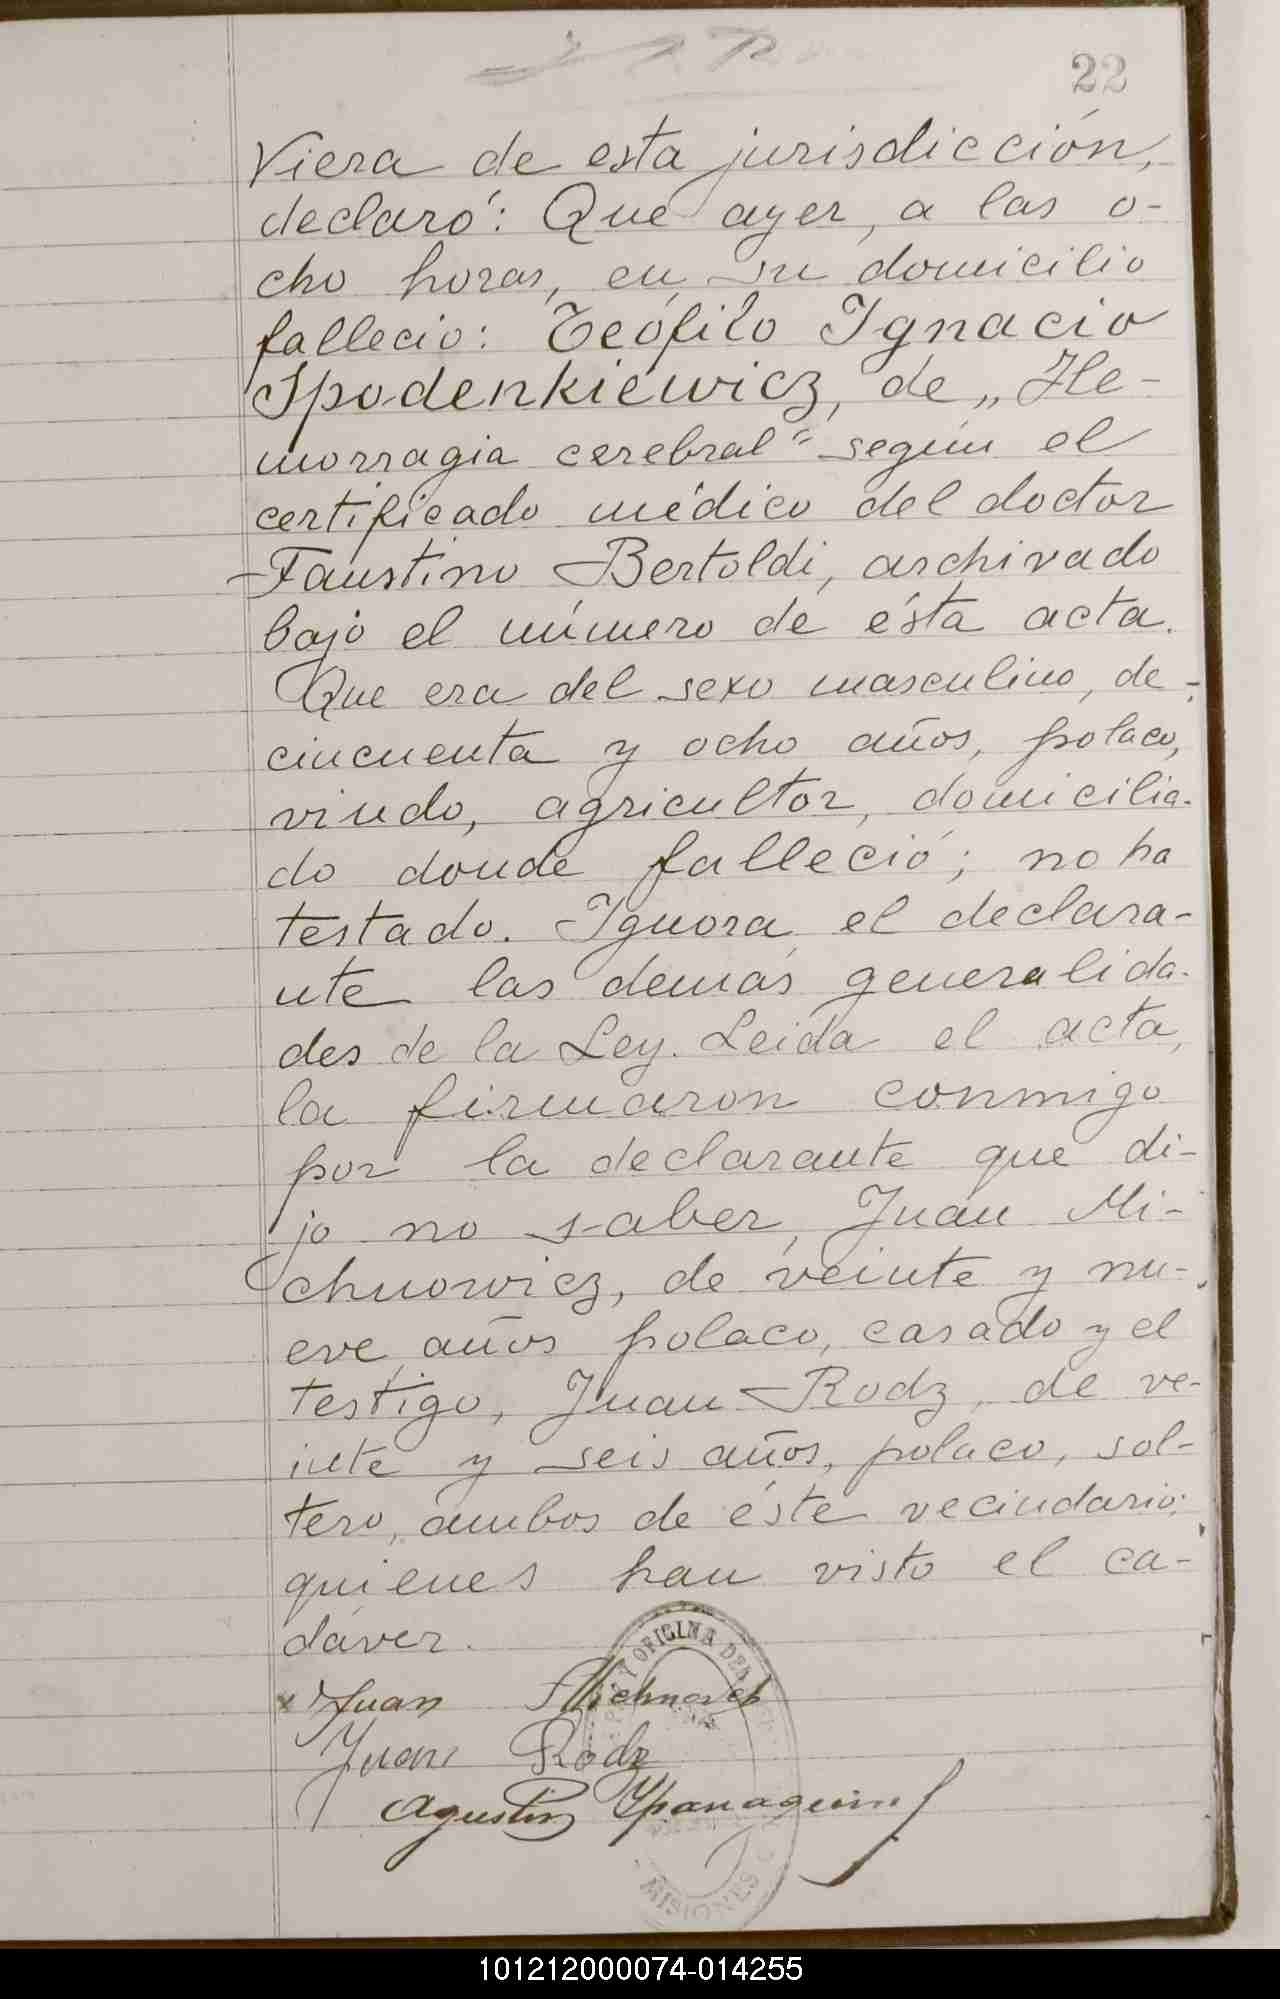 22
Viera de esta jurisdicción,
declaró: Que ayer, a las o-
cho horas, en su domicilio
fallecio: Teófilo Ignacio
Spodenkiewicz, de „He-
morragia cerebral" según el
certificado médico del doctor
Faustino Bertoldi, archivado
bajo el número de ésta acta.
Que era del sexo masculino, de
cincuenta y ocho años, polaco,
viudo, agricultor, domicilia-
do donde falleció; no ha
testado. Ignora el declara-
nte las demás generalida-
des de la Ley. Leida el acta,
la firmaron conmigo
por la declarante que di-
jo no saber, Juan Mi-
chnowicz, de veinte y nu-
eve años polaco, casado y el
testigo, Juan Rodz, de ve-
inte y seis años, polaco, sol-
tero, ambos de éste vecindario;
quienes han visto el ca-
dáver.
OFICINA DEL
x Juan
Juan Rodz
Agustin
MISIONES
101212000074-014255